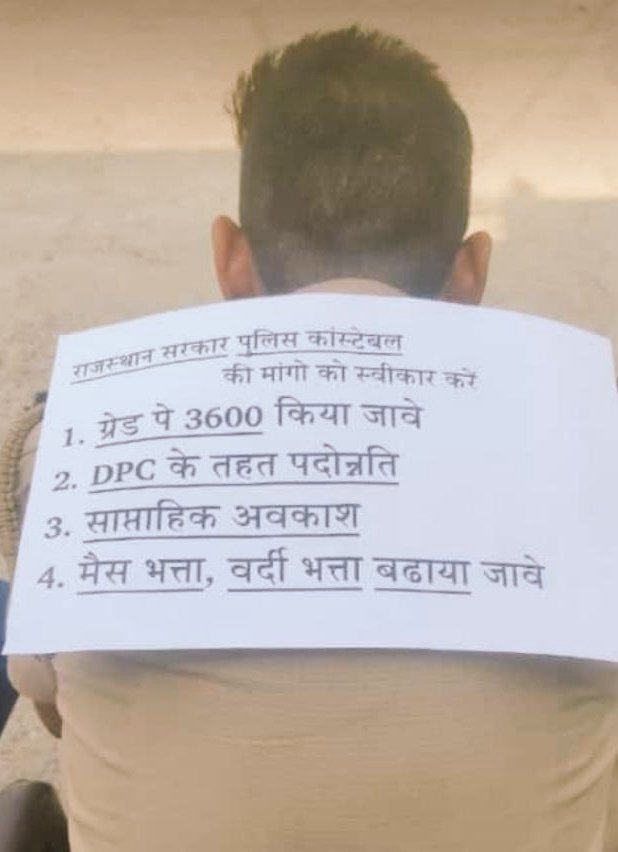 राजस्थान सरकार पुलिस कांस्टेबल
की मांगो को स्वीकार करें
1. ग्रेड पे 3600 किया जावे
2. DPC के तहत पदोन्नति
3. साप्ताहिक अवकाश
4. मैस भत्ता, वर्दी भत्ता बढाया जावे